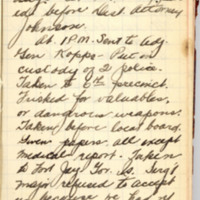 eds before Dist Attorney
Johnson.
At 1 P.M. Sent to Adj
Gen Kopps - Put on
custody of 2 police.
Taken to 6th precinct.
Frisked for valuables,
or dandrous weapons.
Taken before local board.
Given papers, all except
medical report. Taken
to Fort Jay, Gov. Is. Serg't
major refused to accept
us because we had no